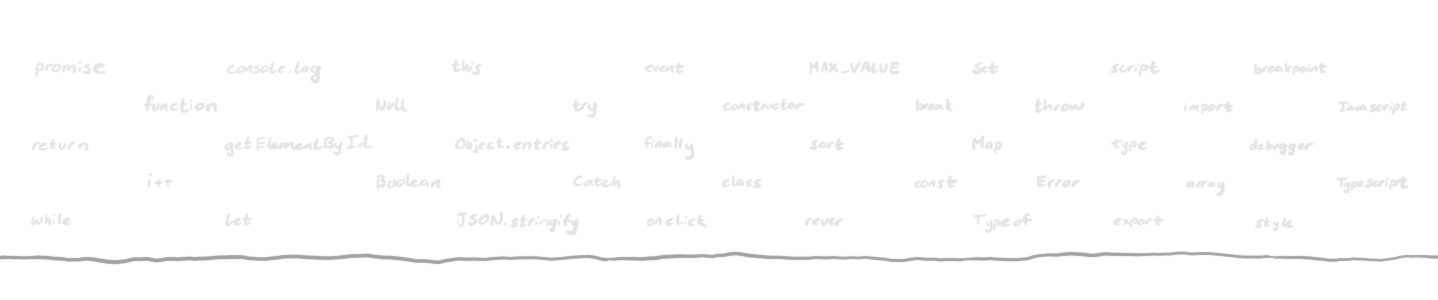 promise console.log this event MAX_VALUE Set script breakpoint
function Null try constructor break throw import Javascript
return getElementById Object.entries finally sort Map type debugger
i++ Boolean Catch class const Error array TypeScript
while let JSON.stringify onclick rever Typeof export style